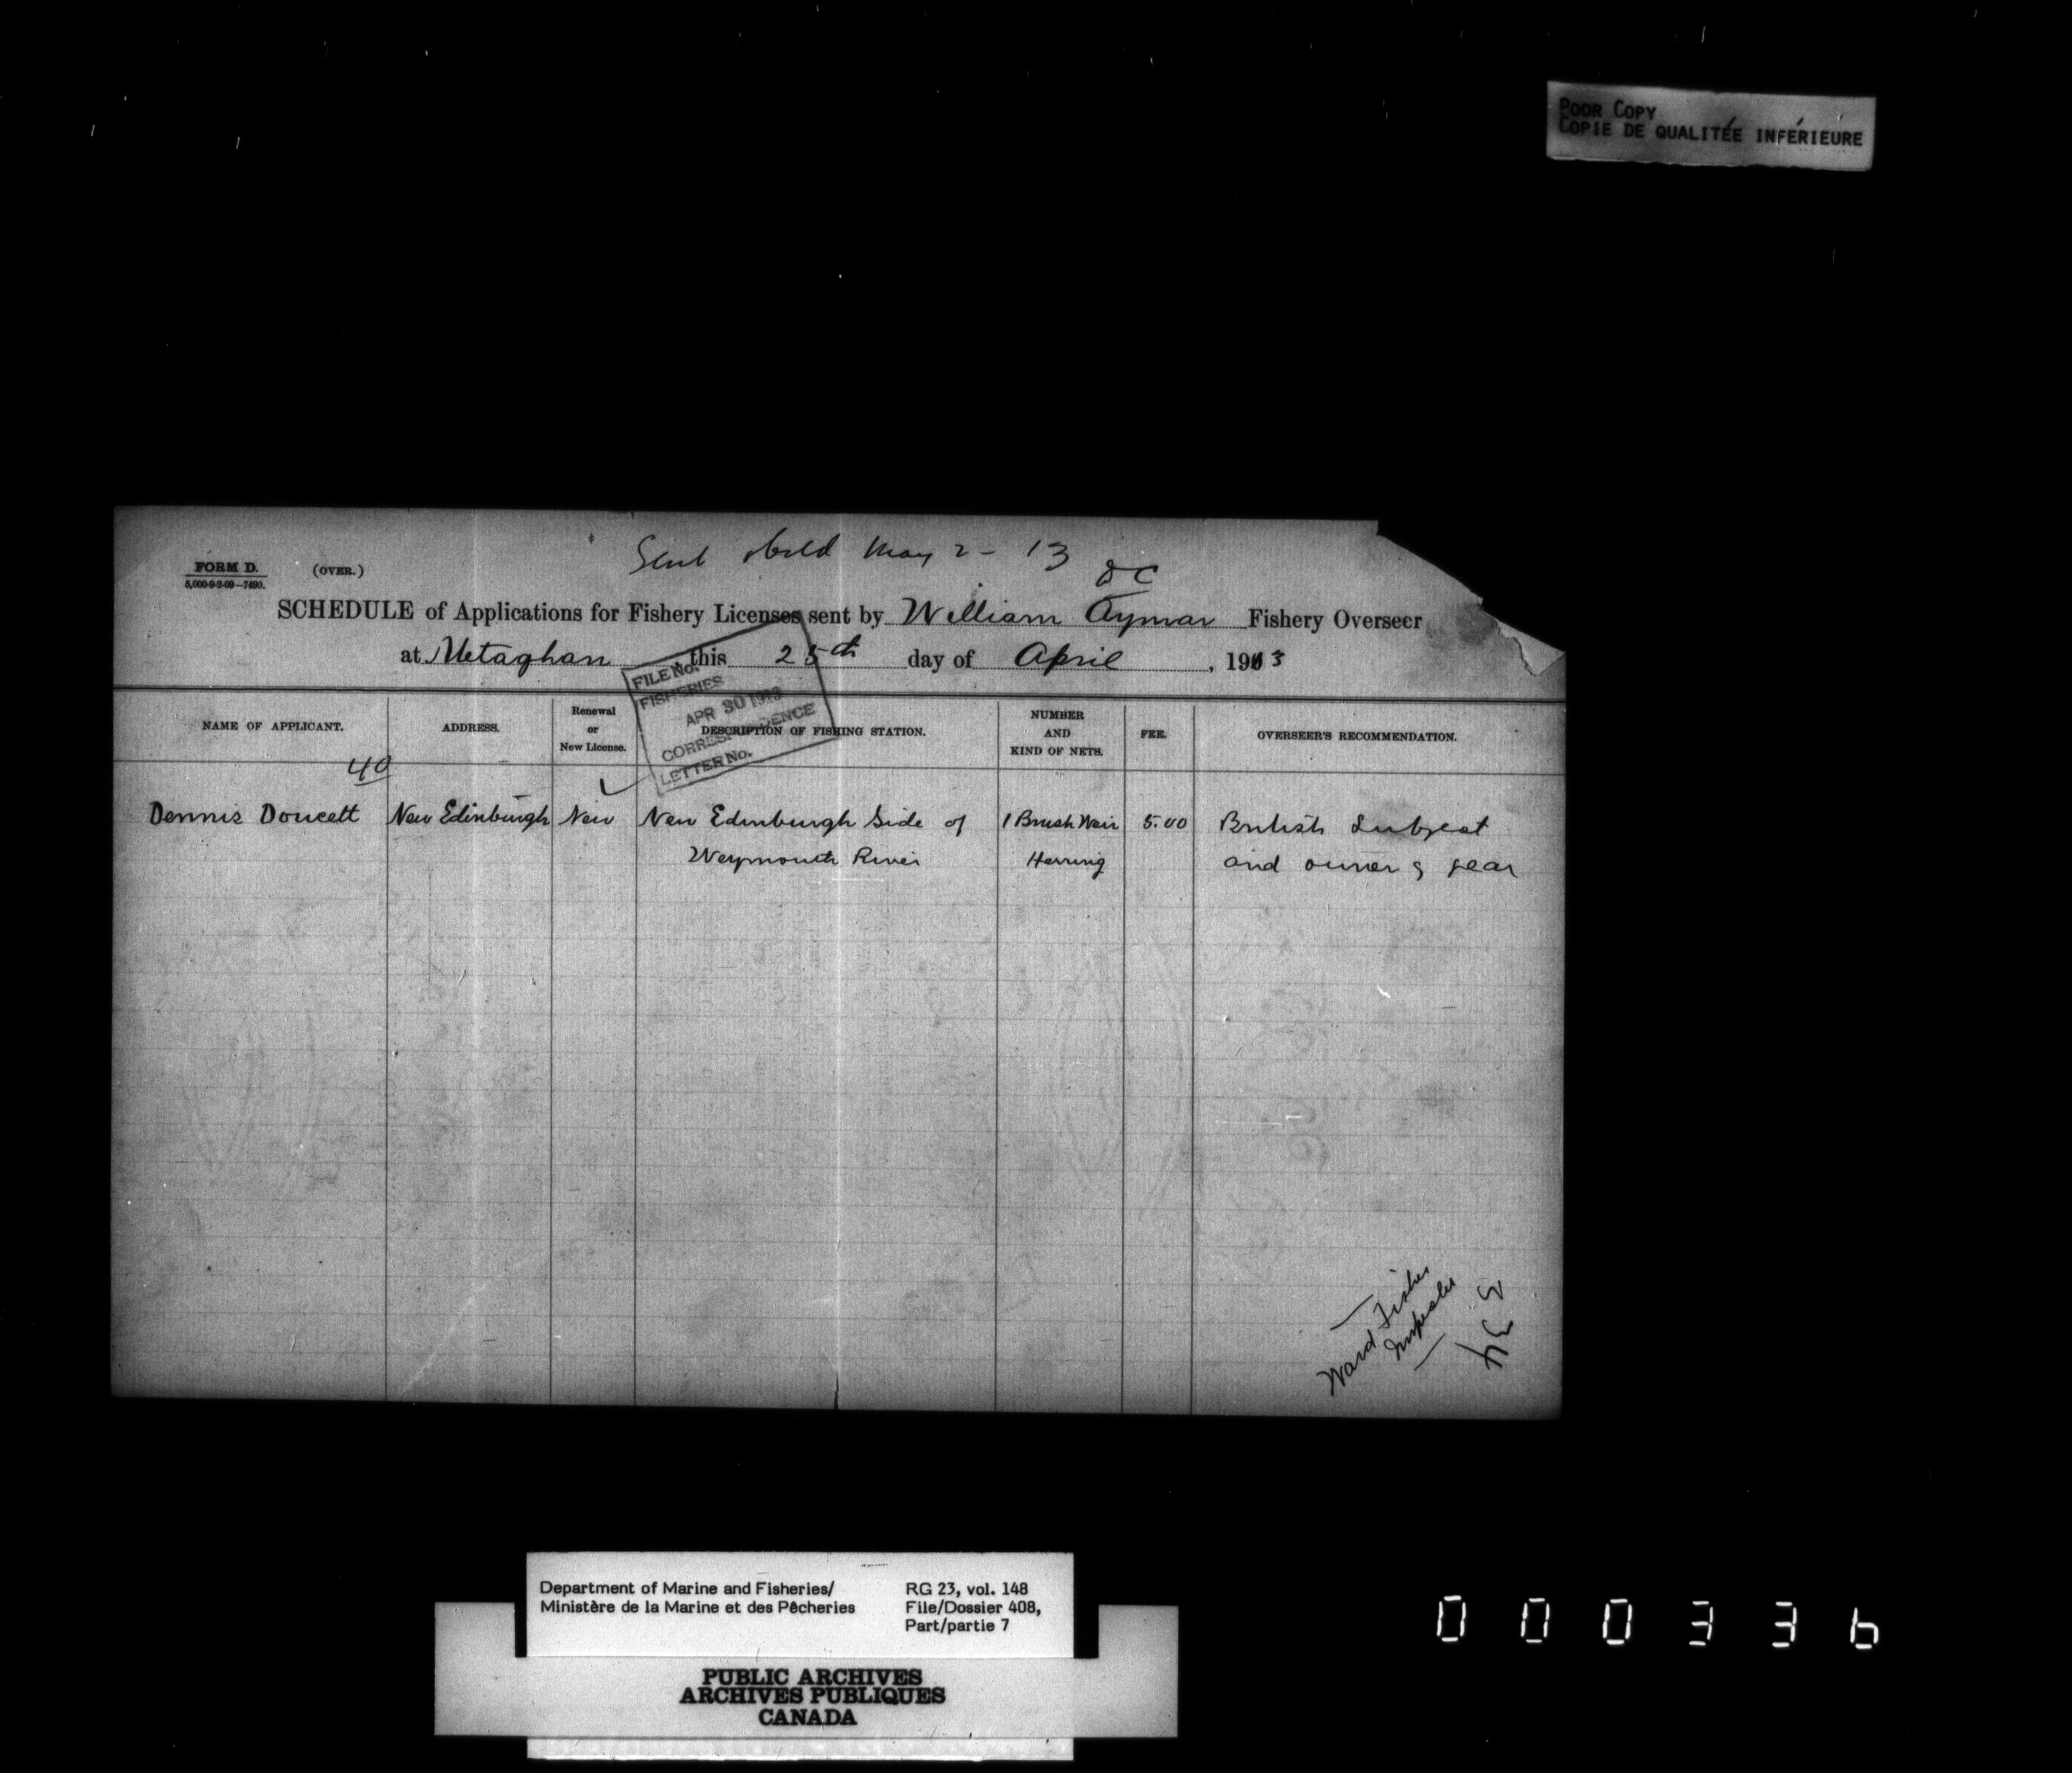 POOR COPY
COPIE DE QUALITÉE INFÉRIEURE
Sent May 2 - 13
FORM D. (OVER.)
5,000-9-2-09—7490.
SCHEDULE of Applications for Fishery Licenses sent by William Aymar Fishery Overseer
at Metaghan this 25th day of April, 1913
FILE No.
FISHERIES
APR 30 1913
CORRESPONDENCE
LETTER No.
NAME OF APPLICANT. ADDRESS. Renewal or New License. DESCRIPTION OF FISHING STATION. NUMBER AND KIND OF NETS. FEE. OVERSEER'S RECOMMENDATION.
40
Dennis Doucett New Edinburgh New New Edinburgh Side of 1 Brush Weir 5.00 British Subject
Weymouth River Herring and owner of gear
Ward Fisher
Inspector
Department of Marine and Fisheries/
Ministère de la Marine et des Pêcheries
RG 23, vol. 148
File/Dossier 408,
Part/partie 7
PUBLIC ARCHIVES
ARCHIVES PUBLIQUES
CANADA
000336